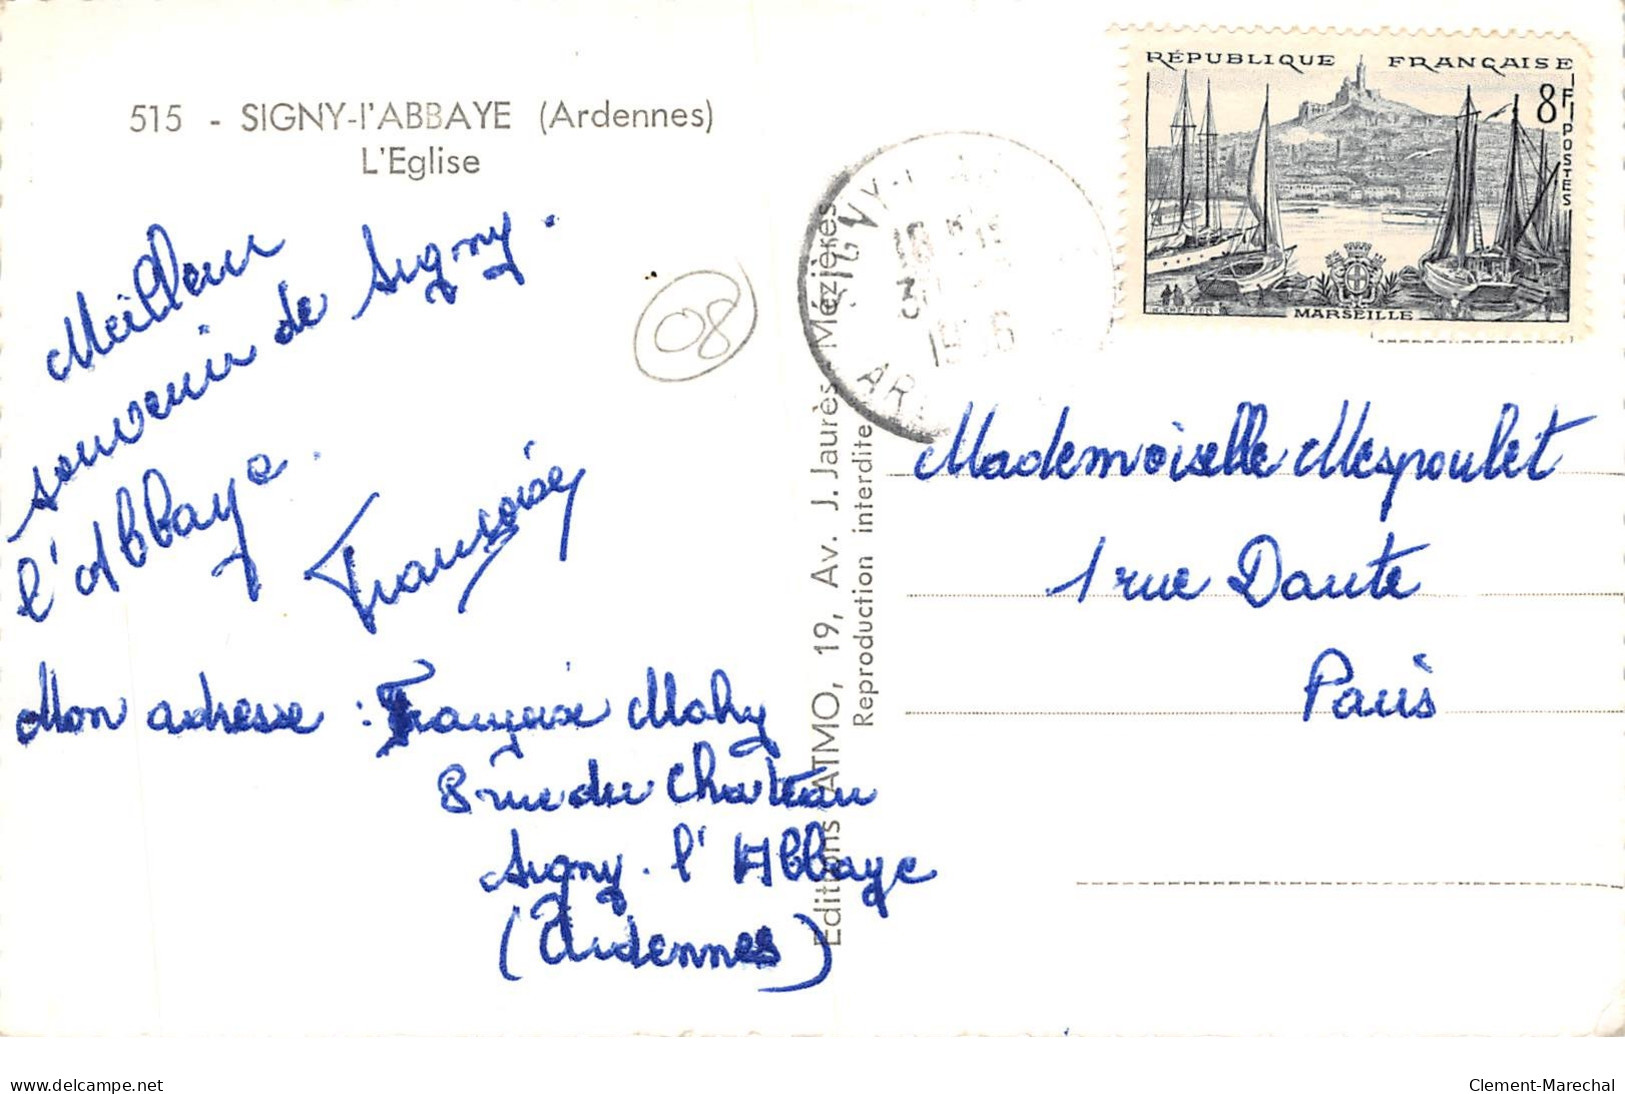 515 - SIGNY-l'ABBAYE (Ardennes)
L'Eglise
Meilleur
souvenir de Signy.
l'Abbaye.
Françoise
Mon adresse : Françoise Mahy
8 rue du Chateau
Signy. l'Abbaye
(Ardennes)
08
Editions ATMO, 19, Av. J. Jaurès - Mézières
Reproduction interdite
1956
RÉPUBLIQUE FRANÇAISE
8F
POSTES
MARSEILLE
Mademoiselle Mespoulet
1 rue Dante
Paris
delcampe.net
Clement-Marechal